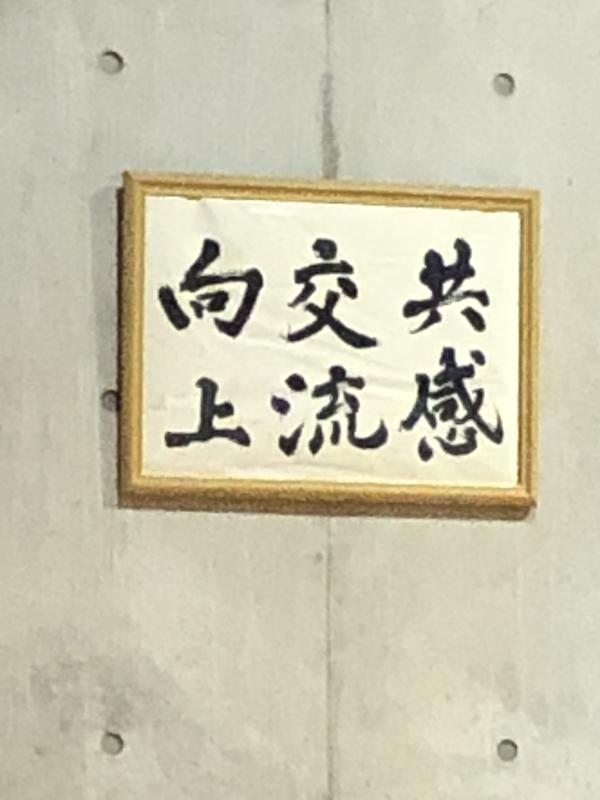 共感
交流
向上